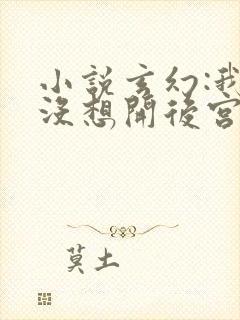 小說玄幻:我
沒想開後宮
莫土